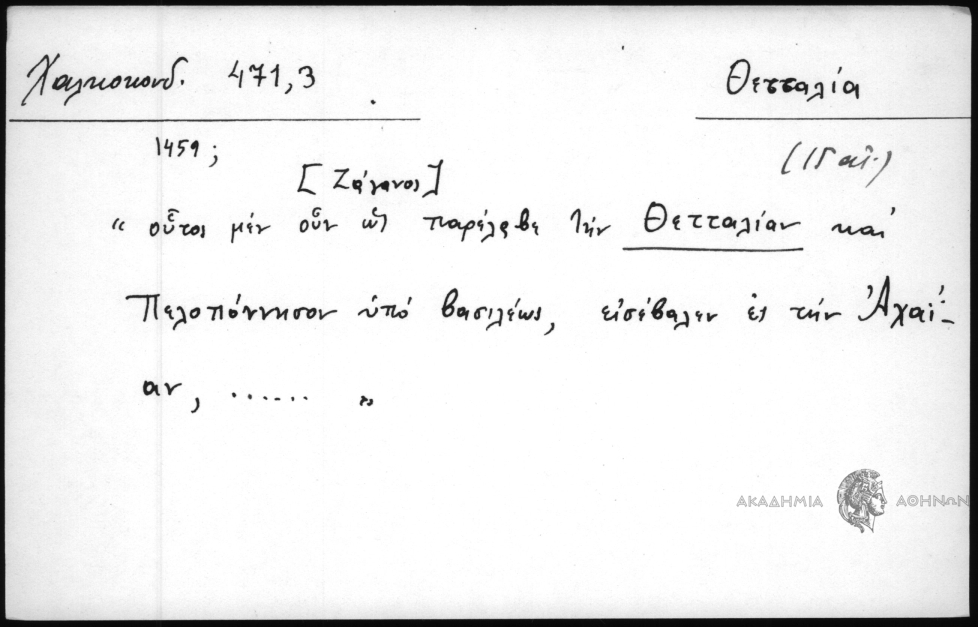 Χαλκοκονδ. 471,3
Θετταλία
1459;
(15 αἰ.)
[Ζάγανος]
“ οὗτος μέν οὖν ὡς παρέλαβε τήν Θετταλίαν καί
Πελοπόννησον ὑπό βασιλέως, εἰσέβαλεν ἐς τήν Ἀχαΐ-
αν, ...... ”
ΑΚΑΔΗΜΙΑ ΑΘΗΝΩΝ